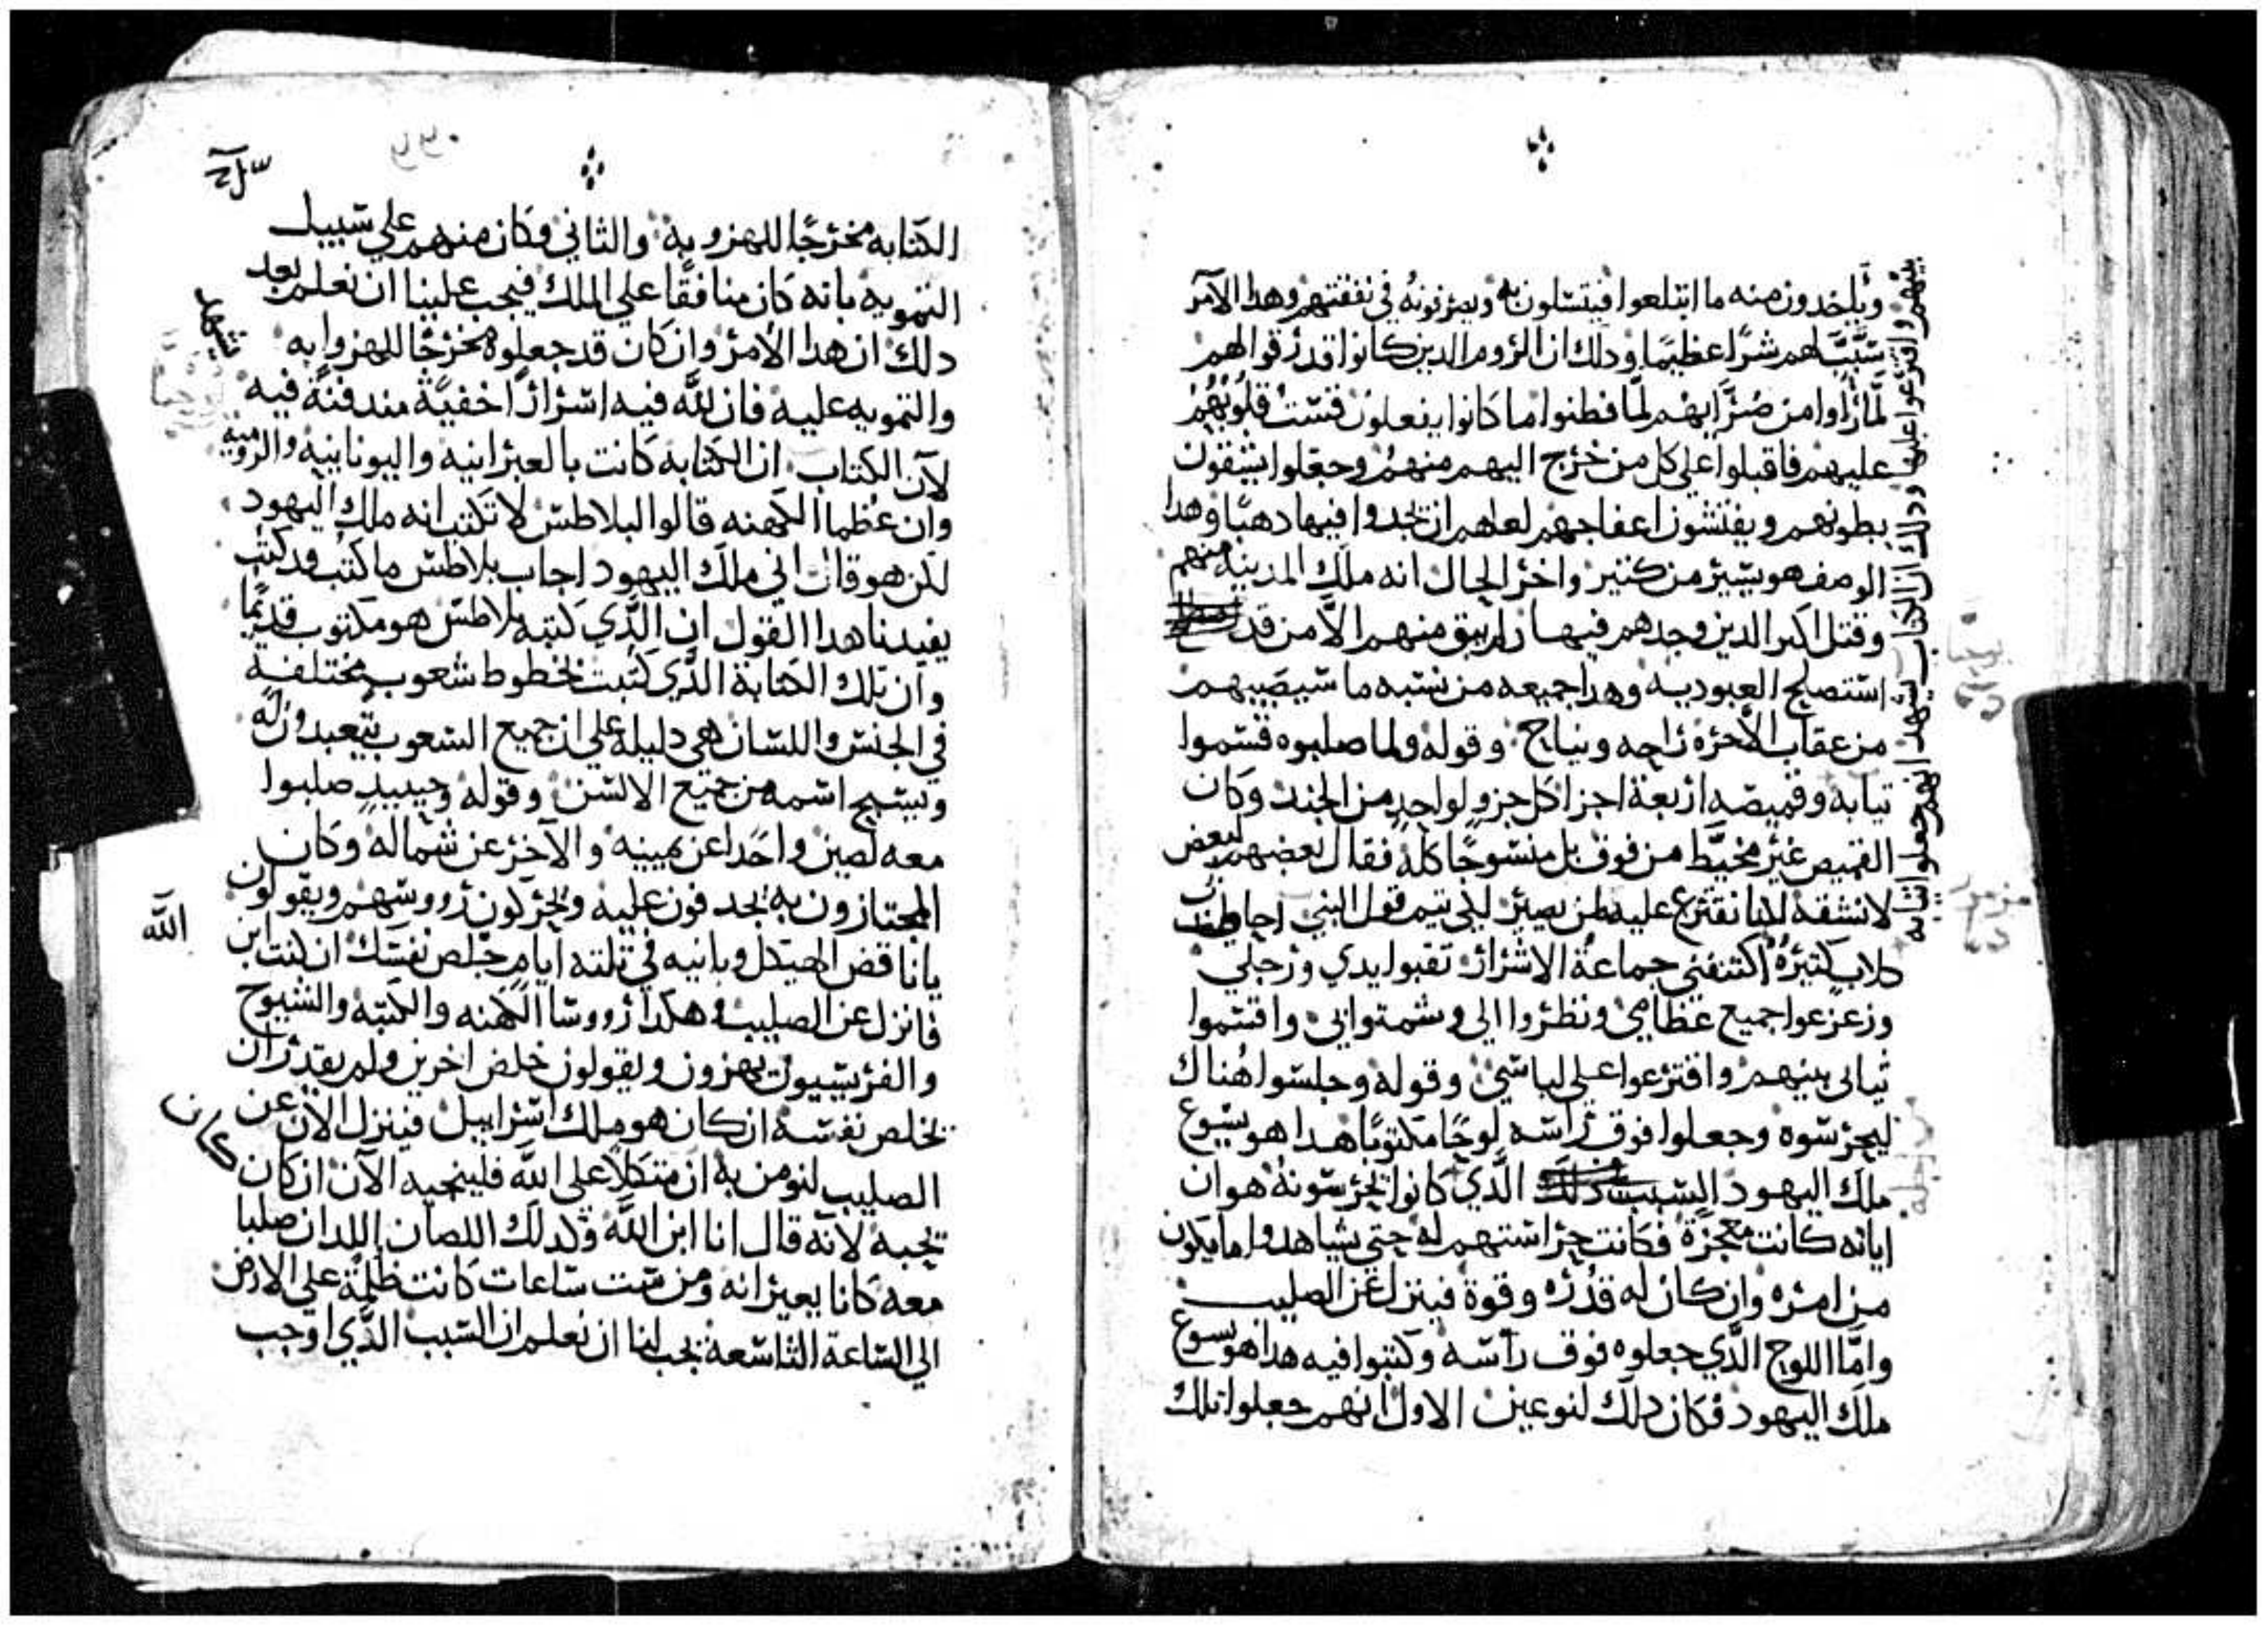 وياخدون منه ما ابتلعوا فيتسلون به ويصرفونه في نفقتهم وهدا الامر
سبب لهم شرا عظيما ودلك ان الروم الدين كانوا قد رقوا لهم
لما راوا من ضرايهم لما فطنوا ما كانوا يفعلون قست قلوبهم
عليهم فاقبلوا على كل من خرج اليهم منهم وجعلوا يشقون
بطونهم ويفتشون اعفاجهم لعلهم ان يجدوا فيها دهبا وهدا
الوصف هو يسير من كتير واخر الحال انه ملك المدينه منهم
وقتل اكبر الدين وجدهم فيها ولم يبق منهم الا من قد
استصلح العبوديه وهدا جميعه من نسبه ما سيصيبهم
من عقاب الاخره نواحه ونياح وقوله ولما صلبوه قسموا
تيابه وقميصه اربعة اجزا كل جزو لواحد من الجند وكان
القميص غير مخيط من فوق بل منسوجا كله فقال بعضهم لبعض
لا نشقه لكنا نقترع عليه لمن يصير لكي يتم قول النبي احاطت بي
كلاب كتيرة اكتنفني جماعة الاشرار تقبوا يدي ورجلي
وزعزعوا جميع عظامي ونظروا الي وشمتوا بي واقتسموا
ثيابي بينهم واقترعوا على لباسي وقوله وجلسوا هناك
ليحرسوه وجعلوا فوق راسه لوحا مكتوبا هدا هو يسوع
ملك اليهود السبب الذي كانوا يحرسونه هو ان
اياته كانت معجزة فكانت حراستهم له حتى يشاهدوا ما يكون
من امره وان كان له قدره وقوة فينزل عن الصليب
واما اللوح الذي جعلوه فوق راسه وكتبوا فيه هدا هو يسوع
ملك اليهود فكان دلك لنوعين الاول انهم جعلوا تلك
بينهم واقترعوا عليها ودلك ان الكتاب يشهد انهم جعلوا تيابه
الكتابه مخرجا للهزو به والثاني وكان منهم على سبيل
التمويه بانه كان منافقا على الملك فيجب علينا ان نعلم بعد
دلك ان هدا الامر وان كان قد جعلوه مخرجا للهزوا به
والتمويه عليه فان لله فيه اسرارا خفية مندفنة فيه
لان الكتاب يشهد ان الكتابه كانت بالعبرانيه واليونانيه والروميه
وان عظما الكهنه قالوا لبلاطس لا تكتب انه ملك اليهود
لكن هو قال اني ملك اليهود اجاب بلاطس ما كتب قد كتب
يفيدنا هدا القول ان الذي كتبه بلاطس هو مكتوب قديما
وان تلك الكتابة الذي كتبت بخطوط شعوب مختلفة
في الجنس واللسان هي دليله على ان جميع الشعوب يتعبدون له
ويسبح اسمه من جميع الالسن وقوله وحينيد صلبوا
معه لصين واحدا عن يمينه والاخر عن شماله وكان
المجتازون به يجدفون عليه ويحركون رووسهم ويقولون
يا ناقض الهيكل وبانيه في تلته ايام خلص نفسك ان كنت ابن
الله
فانزل عن الصليب وهكدا رووسا الكهنه والكتبه والشيوخ
والفريسيون يهزون ويقولون خلص اخرين ولم يقدر ان
يخلص نفسه ان كان هو ملك اسراييل فينزل الان عن
الصليب لنومن به ان كان متكلا على الله فلينجيه الان ان كان
يحبه لانه قال انا ابن الله وكدلك اللصان اللدان صلبا
معه كانا يعيرانه ومن ست ساعات كانت ظلمة على الارض
الى الساعة التاسعة يجب لنا ان نعلم ان السبب الذي اوجب